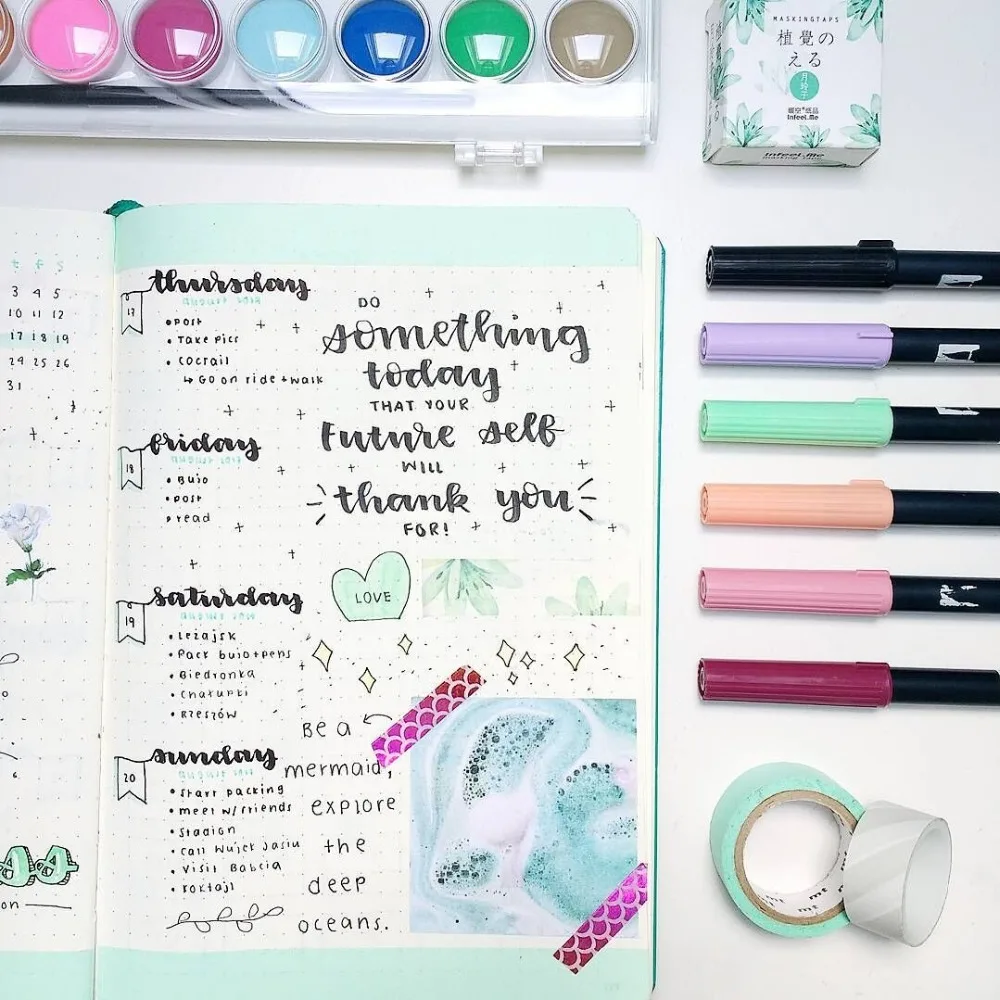 MASKINGTAPS
植覺の
える
月玲子
Infeel.Me
Infeel.Me
t f s
3 4 5
10 11 12
17 18 19
24 25 26
31
thursday
17
• post
• Take pics
• Cocrail
↳ Go on ride + walk
friday
18
• Bujo
• post
• read
saturday
19
• Leżajsk
• Pack bujo+pens
• Biedronka
• Chałupki
• Rzeszów
sunday
20
• Start packing
• meet w/friends
• Stadion
• Call Wujek Jasiu
• Visit Babcia
• Koktajl
DO
something
today
THAT YOUR
Future self
WILL
thank you
FOR!
LOVE
Be a
mermaid,
explore
the
deep
oceans.
mt